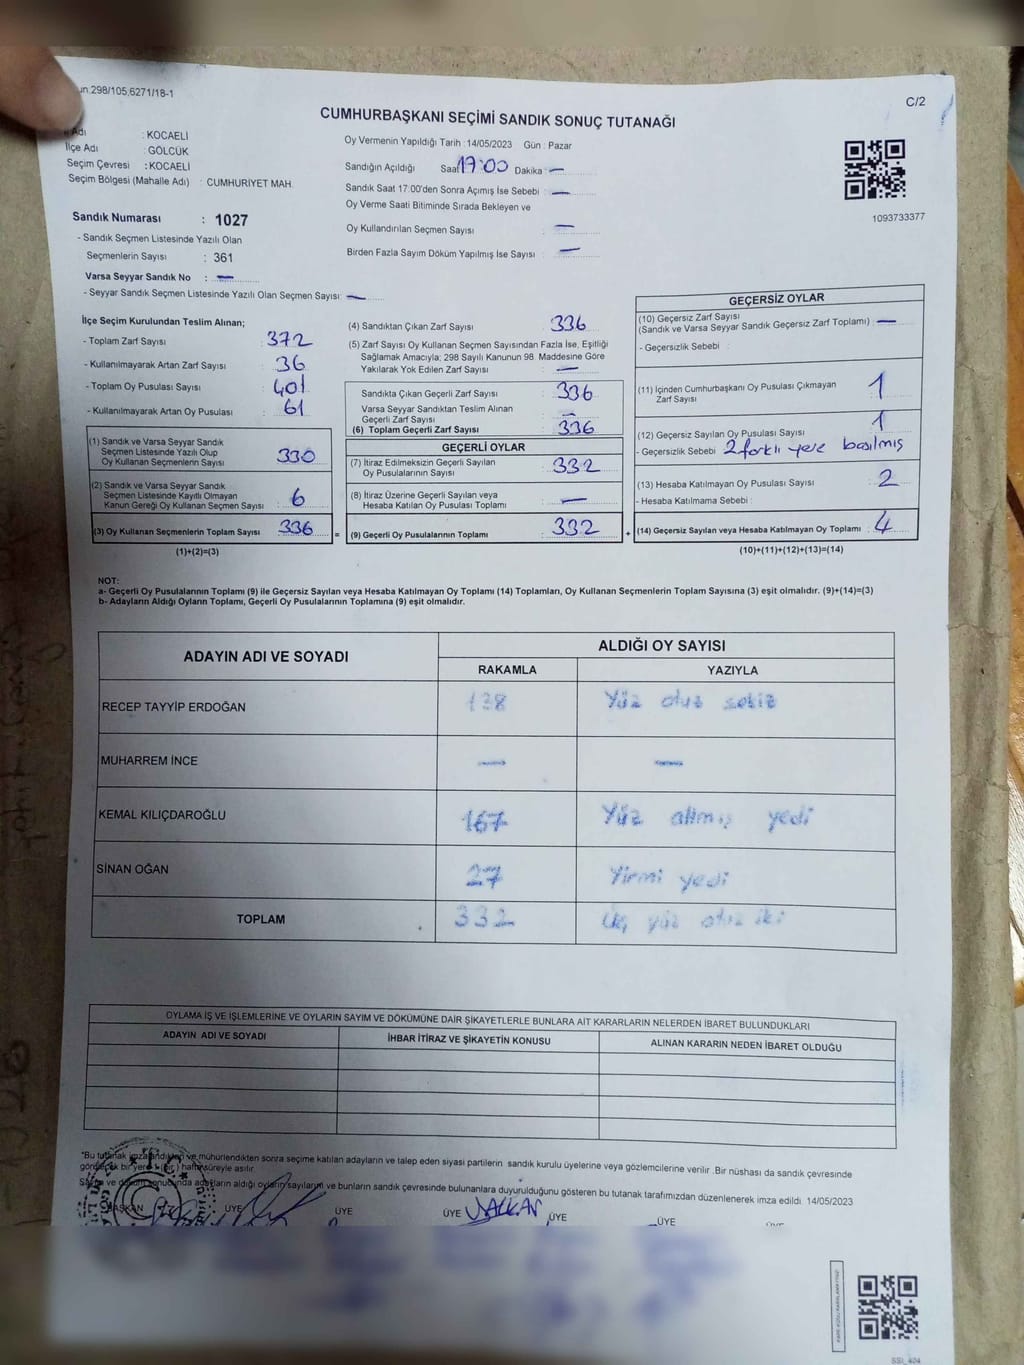 298/105,6271/18-1
C/2
CUMHURBAŞKANI SEÇİMİ SANDIK SONUÇ TUTANAĞI
İl Adı : KOCAELİ
İlçe Adı : GÖLCÜK
Seçim Çevresi : KOCAELİ
Seçim Bölgesi (Mahalle Adı) : CUMHURİYET MAH.
Sandık Numarası : 1027
- Sandık Seçmen Listesinde Yazılı Olan
Seçmenlerin Sayısı : 361
Varsa Seyyar Sandık No : —
- Seyyar Sandık Seçmen Listesinde Yazılı Olan Seçmen Sayısı: —
Oy Vermenin Yapıldığı Tarih : 14/05/2023 Gün : Pazar
Sandığın Açıldığı Saat 17:00 Dakika —
Sandık Saat 17.00'den Sonra Açımış İse Sebebi : —
Oy Verme Saati Bitiminde Sırada Bekleyen ve
Oy Kullandırılan Seçmen Sayısı : —
Birden Fazla Sayım Döküm Yapılmış İse Sayısı : —
1093733377
İlçe Seçim Kurulundan Teslim Alınan;
- Toplam Zarf Sayısı : 372
- Kullanılmayarak Artan Zarf Sayısı : 36
- Toplam Oy Pusulası Sayısı : 401
- Kullanılmayarak Artan Oy Pusulası : 61
(1) Sandık ve Varsa Seyyar Sandık
Seçmen Listesinde Yazılı Olup
Oy Kullanan Seçmenlerin Sayısı : 330
(2) Sandık ve Varsa Seyyar Sandık
Seçmen Listesinde Kayıtlı Olmayan
Kanun Gereği Oy Kullanan Seçmen Sayısı : 6
(3) Oy Kullanan Seçmenlerin Toplam Sayısı : 336
(1)+(2)=(3)
(4) Sandıktan Çıkan Zarf Sayısı : 336
(5) Zarf Sayısı Oy Kullanan Seçmen Sayısından Fazla İse, Eşitliği
Sağlamak Amacıyla; 298 Sayılı Kanunun 98. Maddesine Göre
Yakılarak Yok Edilen Zarf Sayısı : —
Sandıkta Çıkan Geçerli Zarf Sayısı : 336
Varsa Seyyar Sandıktan Teslim Alınan
Geçerli Zarf Sayısı : —
(6) Toplam Geçerli Zarf Sayısı : 336
GEÇERLİ OYLAR
(7) İtiraz Edilmeksizin Geçerli Sayılan
Oy Pusulalarının Sayısı : 332
(8) İtiraz Üzerine Geçerli Sayılan veya
Hesaba Katılan Oy Pusulası Toplamı : —
= (9) Geçerli Oy Pusulalarının Toplamı : 332 +
GEÇERSİZ OYLAR
(10) Geçersiz Zarf Sayısı
(Sandık ve Varsa Seyyar Sandık Geçersiz Zarf Toplamı) : —
- Geçersizlik Sebebi :
(11) İçinden Cumhurbaşkanı Oy Pusulası Çıkmayan
Zarf Sayısı : 1
(12) Geçersiz Sayılan Oy Pusulası Sayısı : 1
- Geçersizlik Sebebi 2 farklı yere basılmış
(13) Hesaba Katılmayan Oy Pusulası Sayısı : 2
- Hesaba Katılmama Sebebi :
(14) Geçersiz Sayılan veya Hesaba Katılmayan Oy Toplamı : 4
(10)+(11)+(12)+(13)=(14)
NOT:
a- Geçerli Oy Pusulalarının Toplamı (9) ile Geçersiz Sayılan veya Hesaba Katılmayan Oy Toplamı (14) Toplamları, Oy Kullanan Seçmenlerin Toplam Sayısına (3) eşit olmalıdır. (9)+(14)=(3)
b- Adayların Aldığı Oyların Toplamı, Geçerli Oy Pusulalarının Toplamına (9) eşit olmalıdır.
ADAYIN ADI VE SOYADI ALDIĞI OY SAYISI
RAKAMLA YAZIYLA
RECEP TAYYİP ERDOĞAN 138 Yüz otuz sekiz
MUHARREM İNCE — —
KEMAL KILIÇDAROĞLU 167 Yüz altmış yedi
SİNAN OĞAN 27 Yirmi yedi
TOPLAM 332 Üç yüz otuz iki
OYLAMA İŞ VE İŞLEMLERİNE VE OYLARIN SAYIM VE DÖKÜMÜNE DAİR ŞİKAYETLERLE BUNLARA AİT KARARLARIN NELERDEN İBARET BULUNDUKLARI
ADAYIN ADI VE SOYADI İHBAR İTİRAZ VE ŞİKAYETİN KONUSU ALINAN KARARIN NEDEN İBARET OLDUĞU
"Bu tutanak imzalandıktan ve mühürlendikten sonra seçime katılan adayların ve talep eden siyasi partilerin sandık kurulu üyelerine veya gözlemcilerine verilir. Bir nüshası da sandık çevresinde
görülecek bir yere 1 (bir) hafta süreyle asılır.
Sayım ve döküm sonucunda adayların aldığı oyların sayılarını ve bunların sandık çevresinde bulunanlara duyurulduğunu gösteren bu tutanak tarafımızdan düzenlenerek imza edildi. 14/05/2023
BAŞKAN ÜYE ÜYE ÜYE ÜYE ÜYE